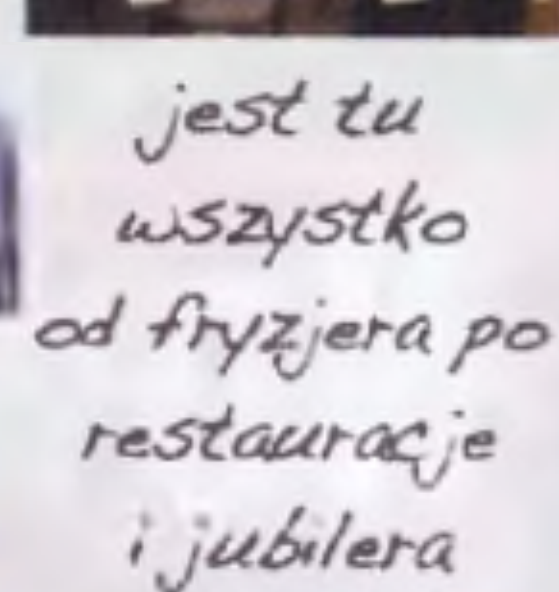 jest tu
wszystko
od fryzjera po
restauracje
i jubilera